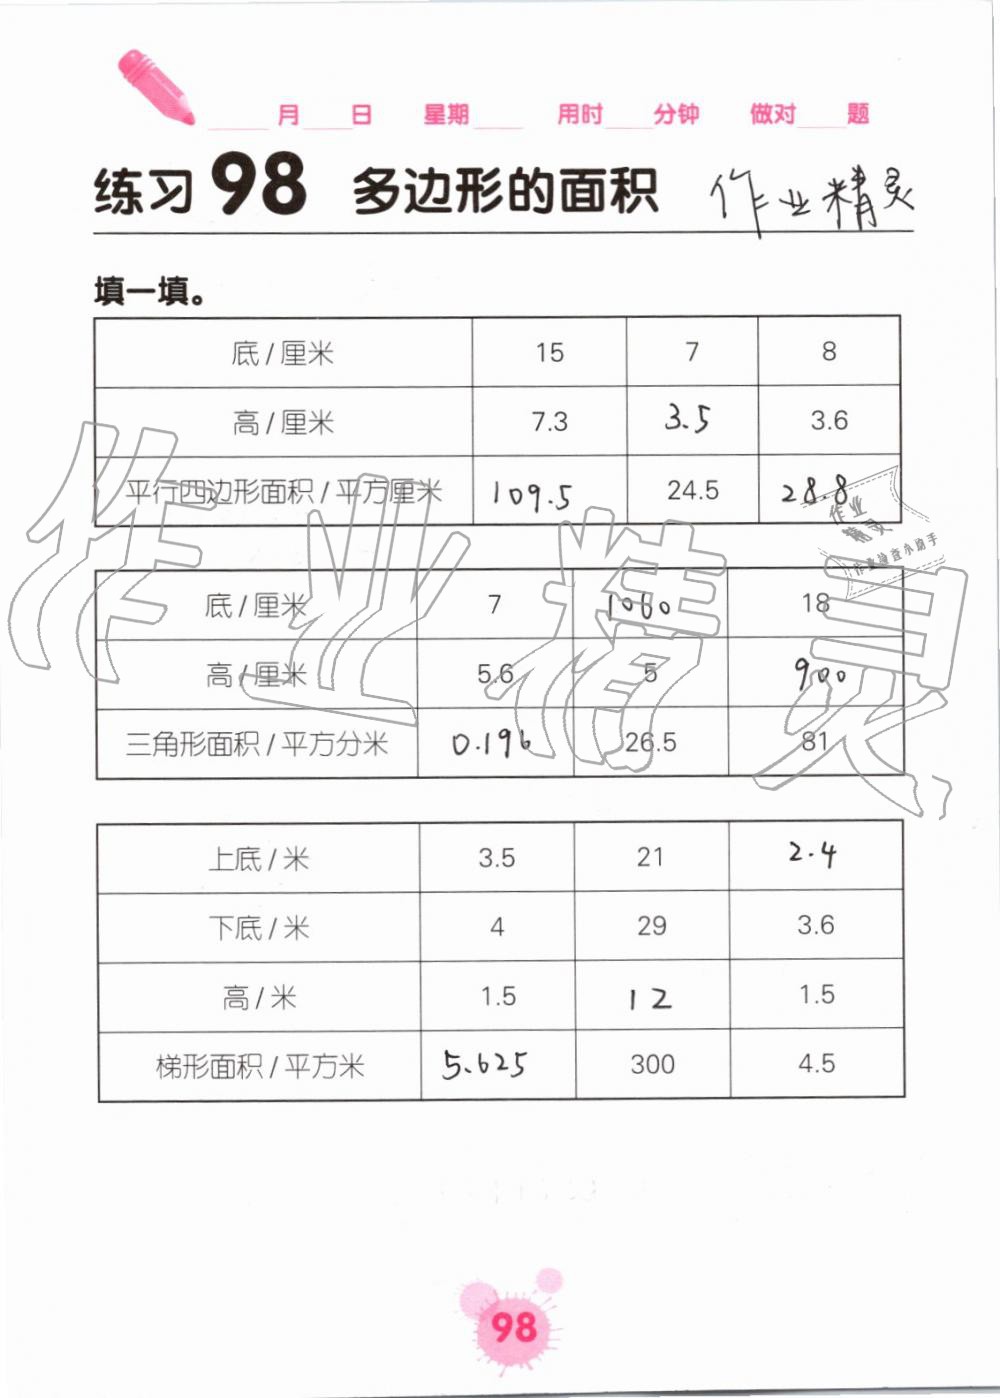 月 日 星期 用时 分钟 做对 题
练习 98 多边形的面积 作业精灵
填一填。
底/厘米 15 7 8
高/厘米 7.3 3.5 3.6
平行四边形面积/平方厘米 109.5 24.5 28.8
作业
精灵
作业检查小助手
作业精灵
底/厘米 7 1060 18
高/厘米 5.6 5 900
三角形面积/平方分米 0.196 26.5 81
上底/米 3.5 21 2.4
下底/米 4 29 3.6
高/米 1.5 12 1.5
梯形面积/平方米 5.625 300 4.5
98